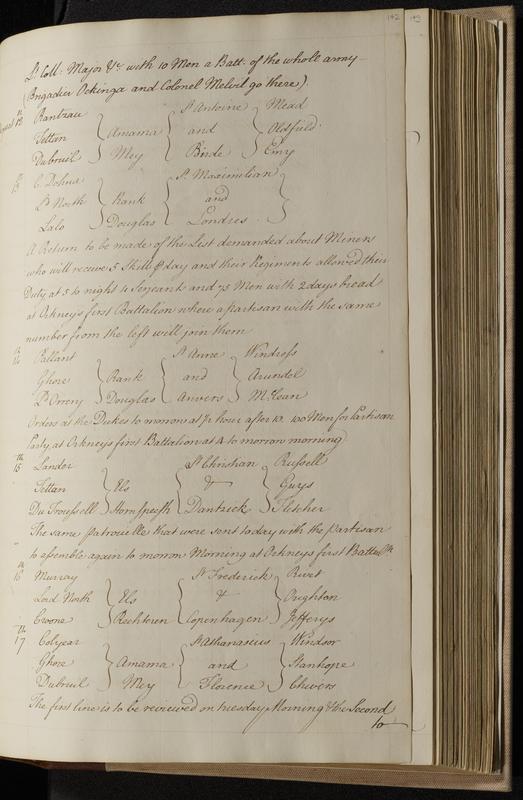 142 143
Lt Coll: Major &c with 10 Men a Batt: of the whole army—
(Brigadier Ockinga and Colonel Melvil go these)
12th Rantzau St Antoine Mead
Tettau Amama and Oldfield
Dubreuil Mey Birde Emy
13 C: Dohna St Maximilian
Ld North Rank and
Lalo Douglas Londres
A Return to be made of the List demanded about Miners
who will receive 5 Skill ⅌ day and their Regiments allowed their
Duty at 5 to night 4 Serjeants and 75 Men with 2 days bread
at Orkneys first Battalion where a partisan with the same
number from the left will join them
14 Pallant St Anne Windress
Ghore Rank and Arundel
Ld Orrery Douglas Anvers McLean
Orders at the Dukes to morrow at ½ hour after 10. 100 Men for Partisan
Party at Orkneys first Battalion at 4 to morrow morning
15th Lander St Christian Russell
Tettau Els & Guys
Du Troussell Hornspesch Dantzick Fletcher
The same patrouille that were sent to day with the partisan
to assemble again to morrow Morning at Orkneys first Battall:n
16 Murray St Frederick Rivet
Lord North Els & Oughton
Croone Rechteren Copenhagen Jefferys
17th Colyear St Athanasius Windsor
Ghore Amama and Stanhope
Dubreuil Mey Florence Chivers
The first line is to be reviewed on tuesday Morning & the Second
to